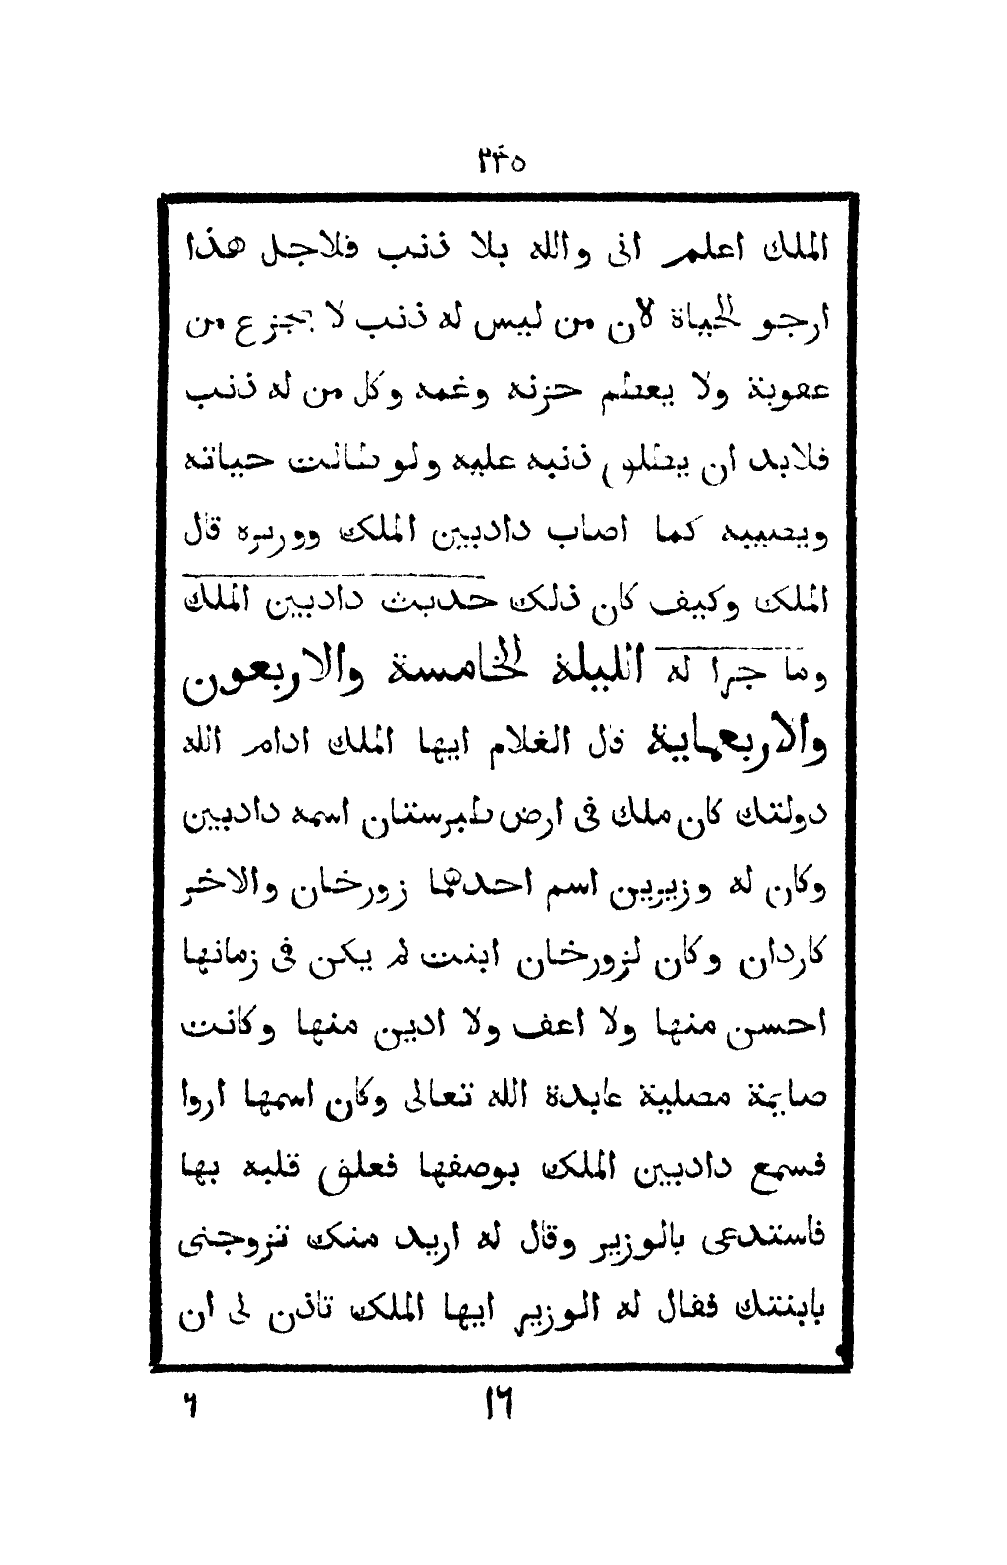 ٢٤٥
الملك اعلم انى والله بلا ذنب فلاجل هذا
ارجو الحياة لان من ليس له ذنب لا يجزع من
عقوبة ولا يعظم حزنه وغمه وكل من له ذنب
فلابد ان ينطلق ذنبه عليه ولو طالت حياته
ويصيبه كما اصاب دادبين الملك ووزيره قال
الملك وكيف كان ذلك حديث دادبين الملك
وما جرا له الليلة الخامسة والاربعون
والاربعماية قال الغلام ايها الملك ادام الله
دولتك كان ملك فى ارض طبرستان اسمه دادبين
وكان له وزيرين اسم احدهما زورخان والاخر
كاردان وكان لزورخان ابنت لم يكن فى زمانها
احسن منها ولا اعف ولا ادين منها وكانت
صايمة مصلية عابدة الله تعالى وكان اسمها اروا
فسمع دادبين الملك بوصفها فعلق قلبه بها
فاستدعى بالوزير وقال له اريد منك تزوجنى
بابنتك فقال له الوزير ايها الملك تاذن لى ان
١٦ ٦